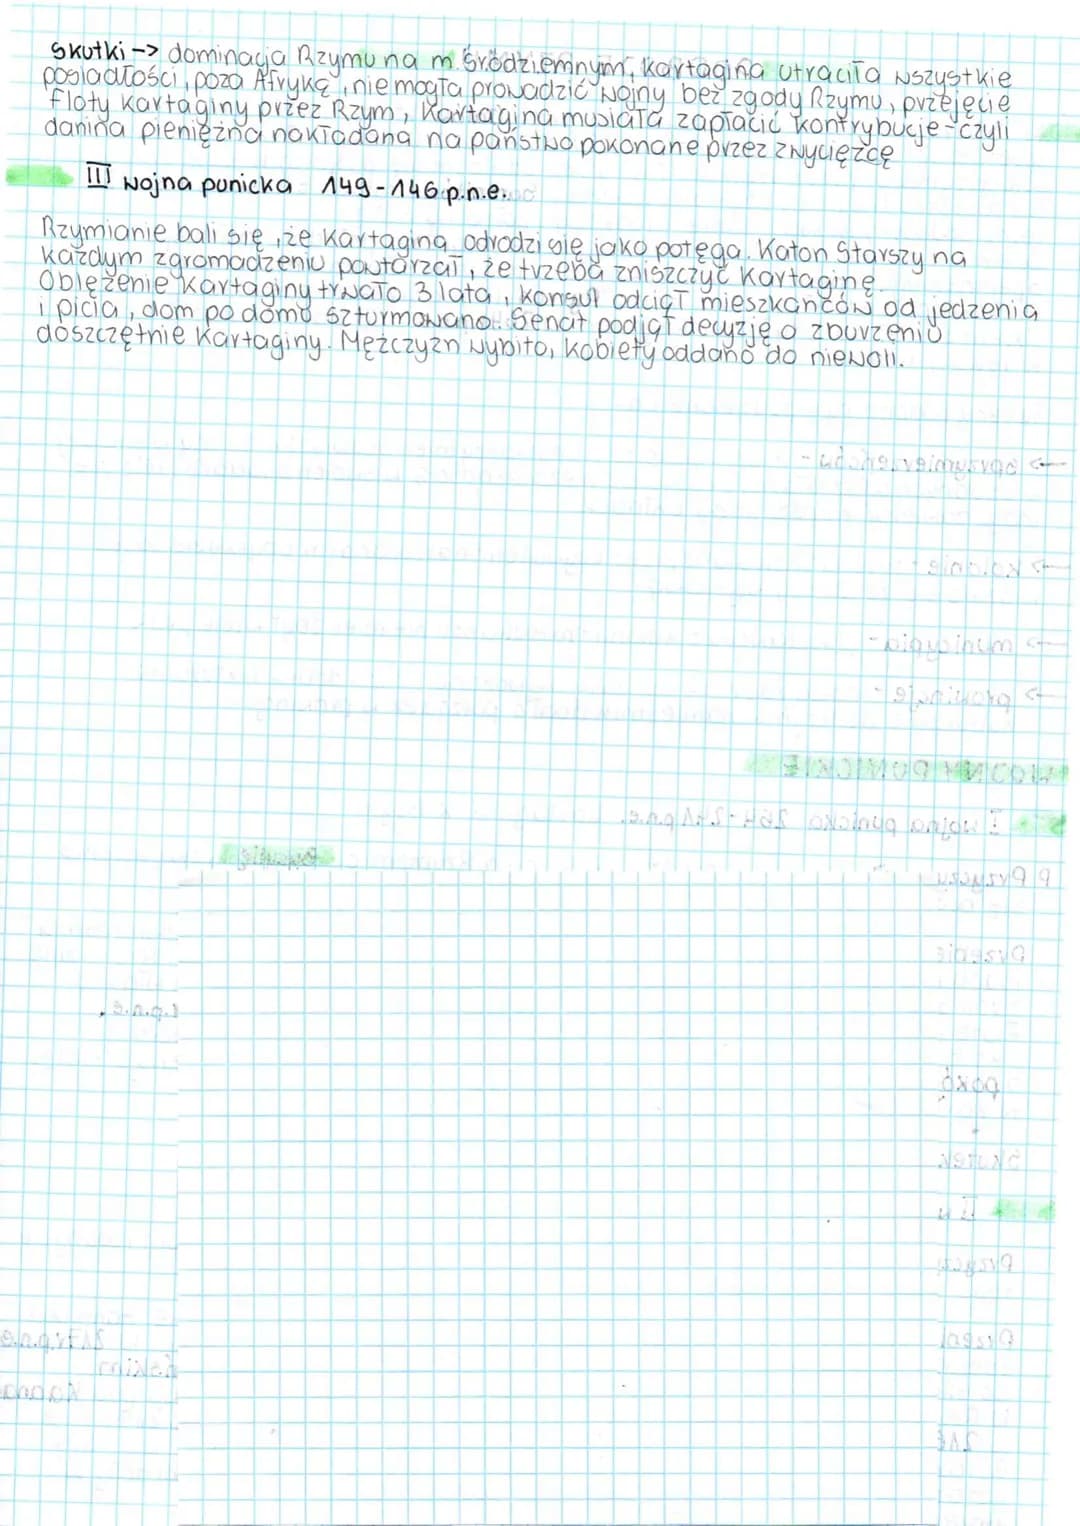 Skutki -> dominacja Rzymu na m. Śródziemnym, Kartagina utraciła wszystkie
posiadłości, poza Afryką, nie mogła prowadzić wojny bez zgody Rzymu, przejęcie
floty Kartaginy przez Rzym, Kartagina musiała zapłacić kontrybucje - czyli
danina pieniężna nakładana na państwo pokonane przez zwycięzcę
III wojna punicka 149-146 p.n.e.
Rzymianie bali się, że Kartagina odrodzi się jako potęga. Katon Starszy na
każdym zgromadzeniu powtarzał, że trzeba zniszczyć Kartaginę.
Oblężenie Kartaginy trwało 3 lata, konsul odciął mieszkańców od jedzenia
i picia, dom po domu szturmowano. Senat podjął decyzję o zburzeniu
doszczętnie Kartaginy. Mężczyzn wybito, kobiety oddano do niewoli.